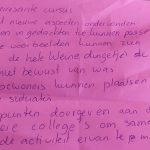 eressante cursus
nieuwe aspecten onderwerpen
in gedachten te kunnen
voorbeelden kunnen zijn
de hele kleine dingetjes de
niet bewust van was
bewoners kunnen plaatsen
situaties
punten doorgeven aan
ere college's om same
de activiteit ervan te